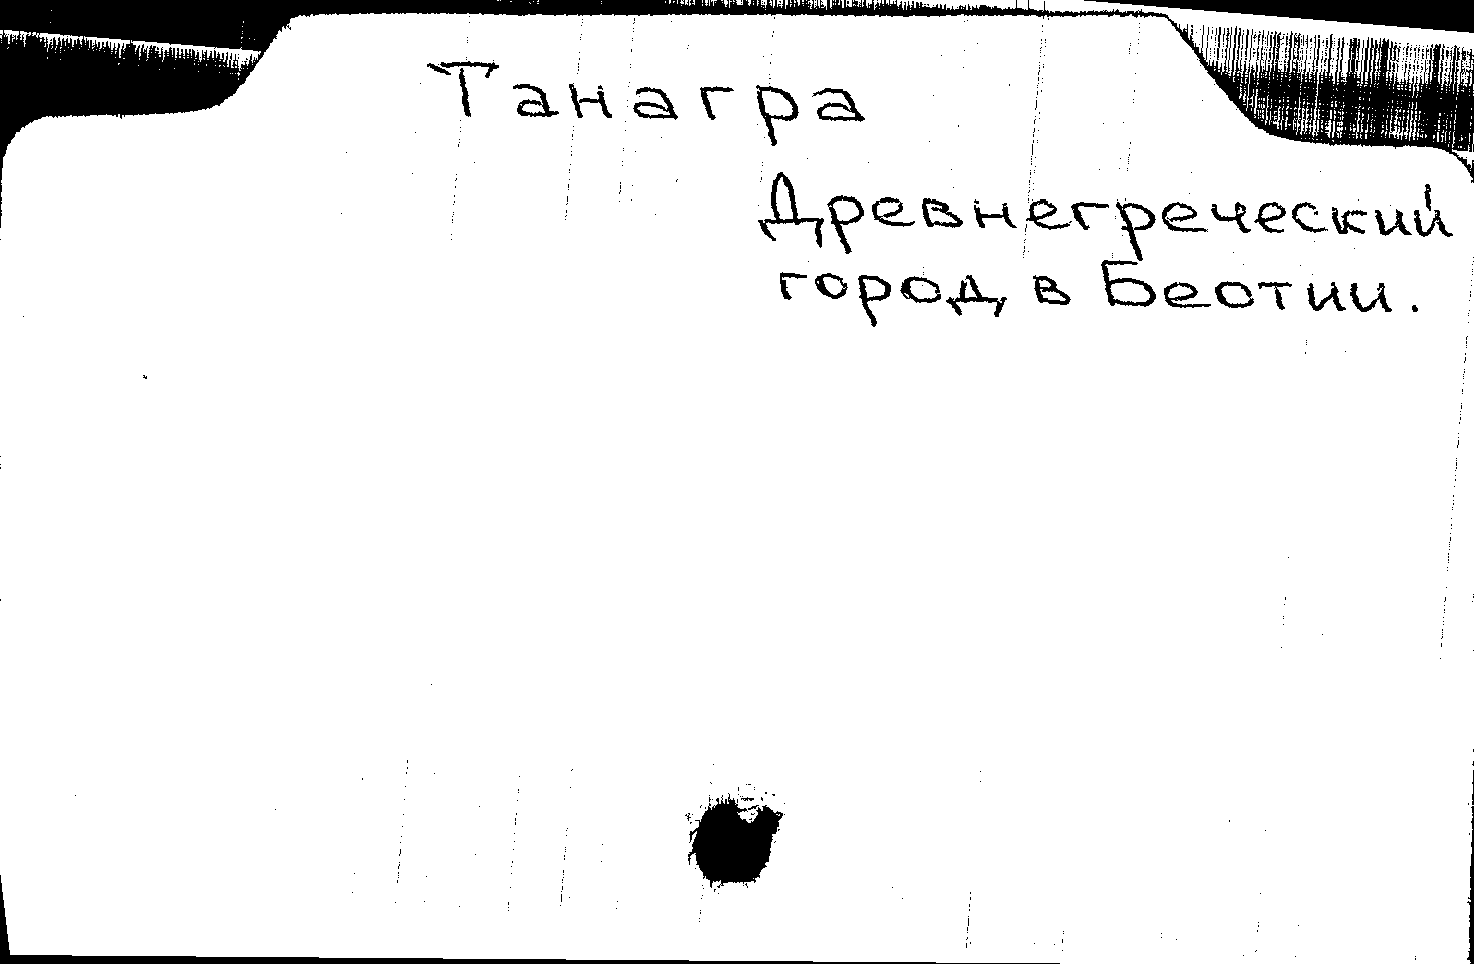 Танагра
Древнегреческий
город в Беотии.